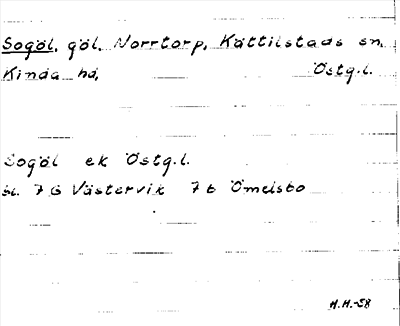 Sogöl, göl, Norrtorp, Kättilstads sn,
Kinda hd, Östg.l.
Sogöl ek Östg.l.
bl. 7 G Västervik 7 b Ömelsbo
H.H.-58